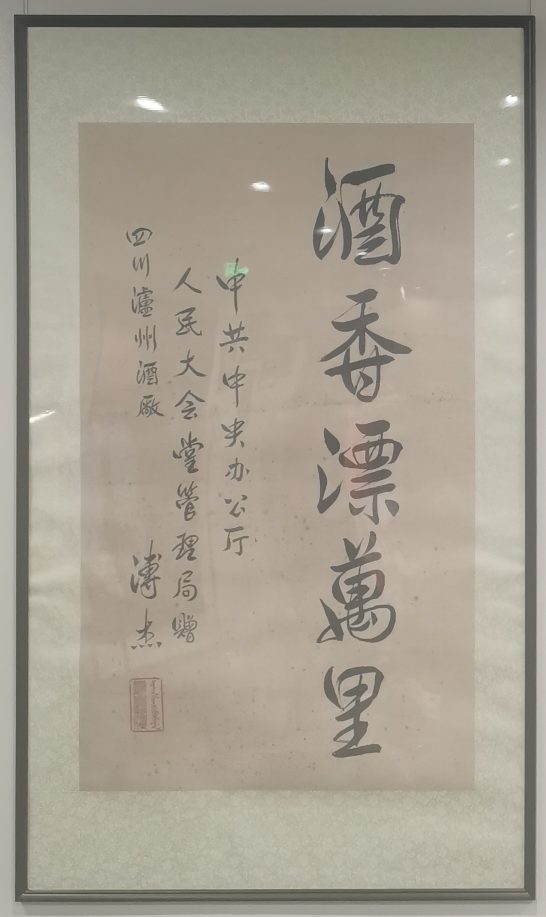 酒香漂萬里
中共中央办公厅
人民大会堂管理局赠
四川瀘州酒厰
溥杰